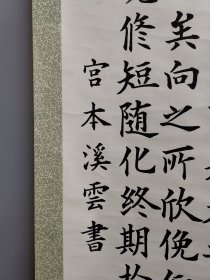 矣向之所欣俛
修短随化終期於
宮本溪雲書